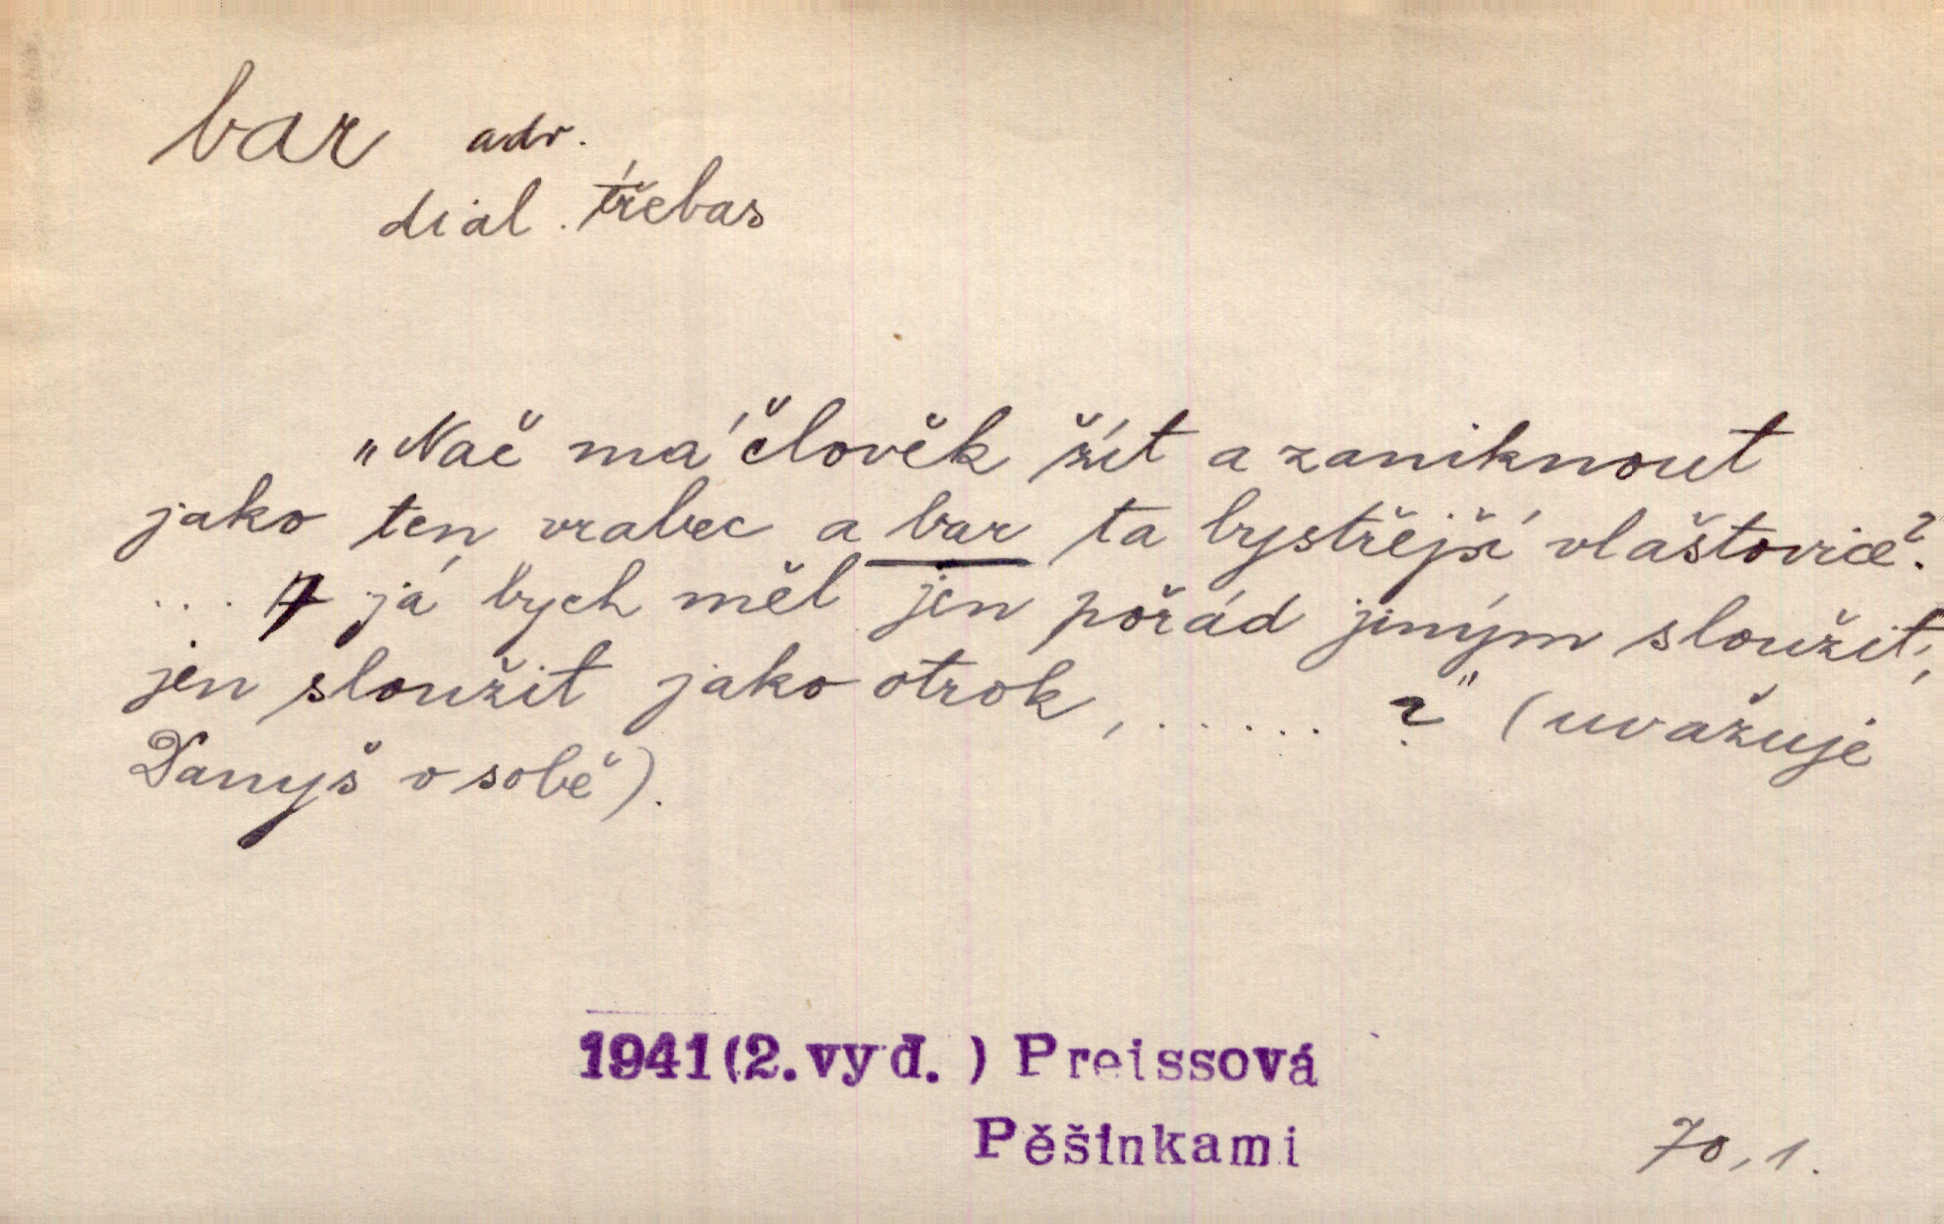 bar adv.
dial. třebas
„Nač má člověk žít a zaniknout
jako ten vrabec a bar ta bystřejší vlaštovice?
... A já bych měl jen pořád jiným sloužit,
jen sloužit jako otrok, ...... ?" (uvažuje
Danyš v sobě).
1941(2.vyd.) Preissová
Pěšinkami
70,1.